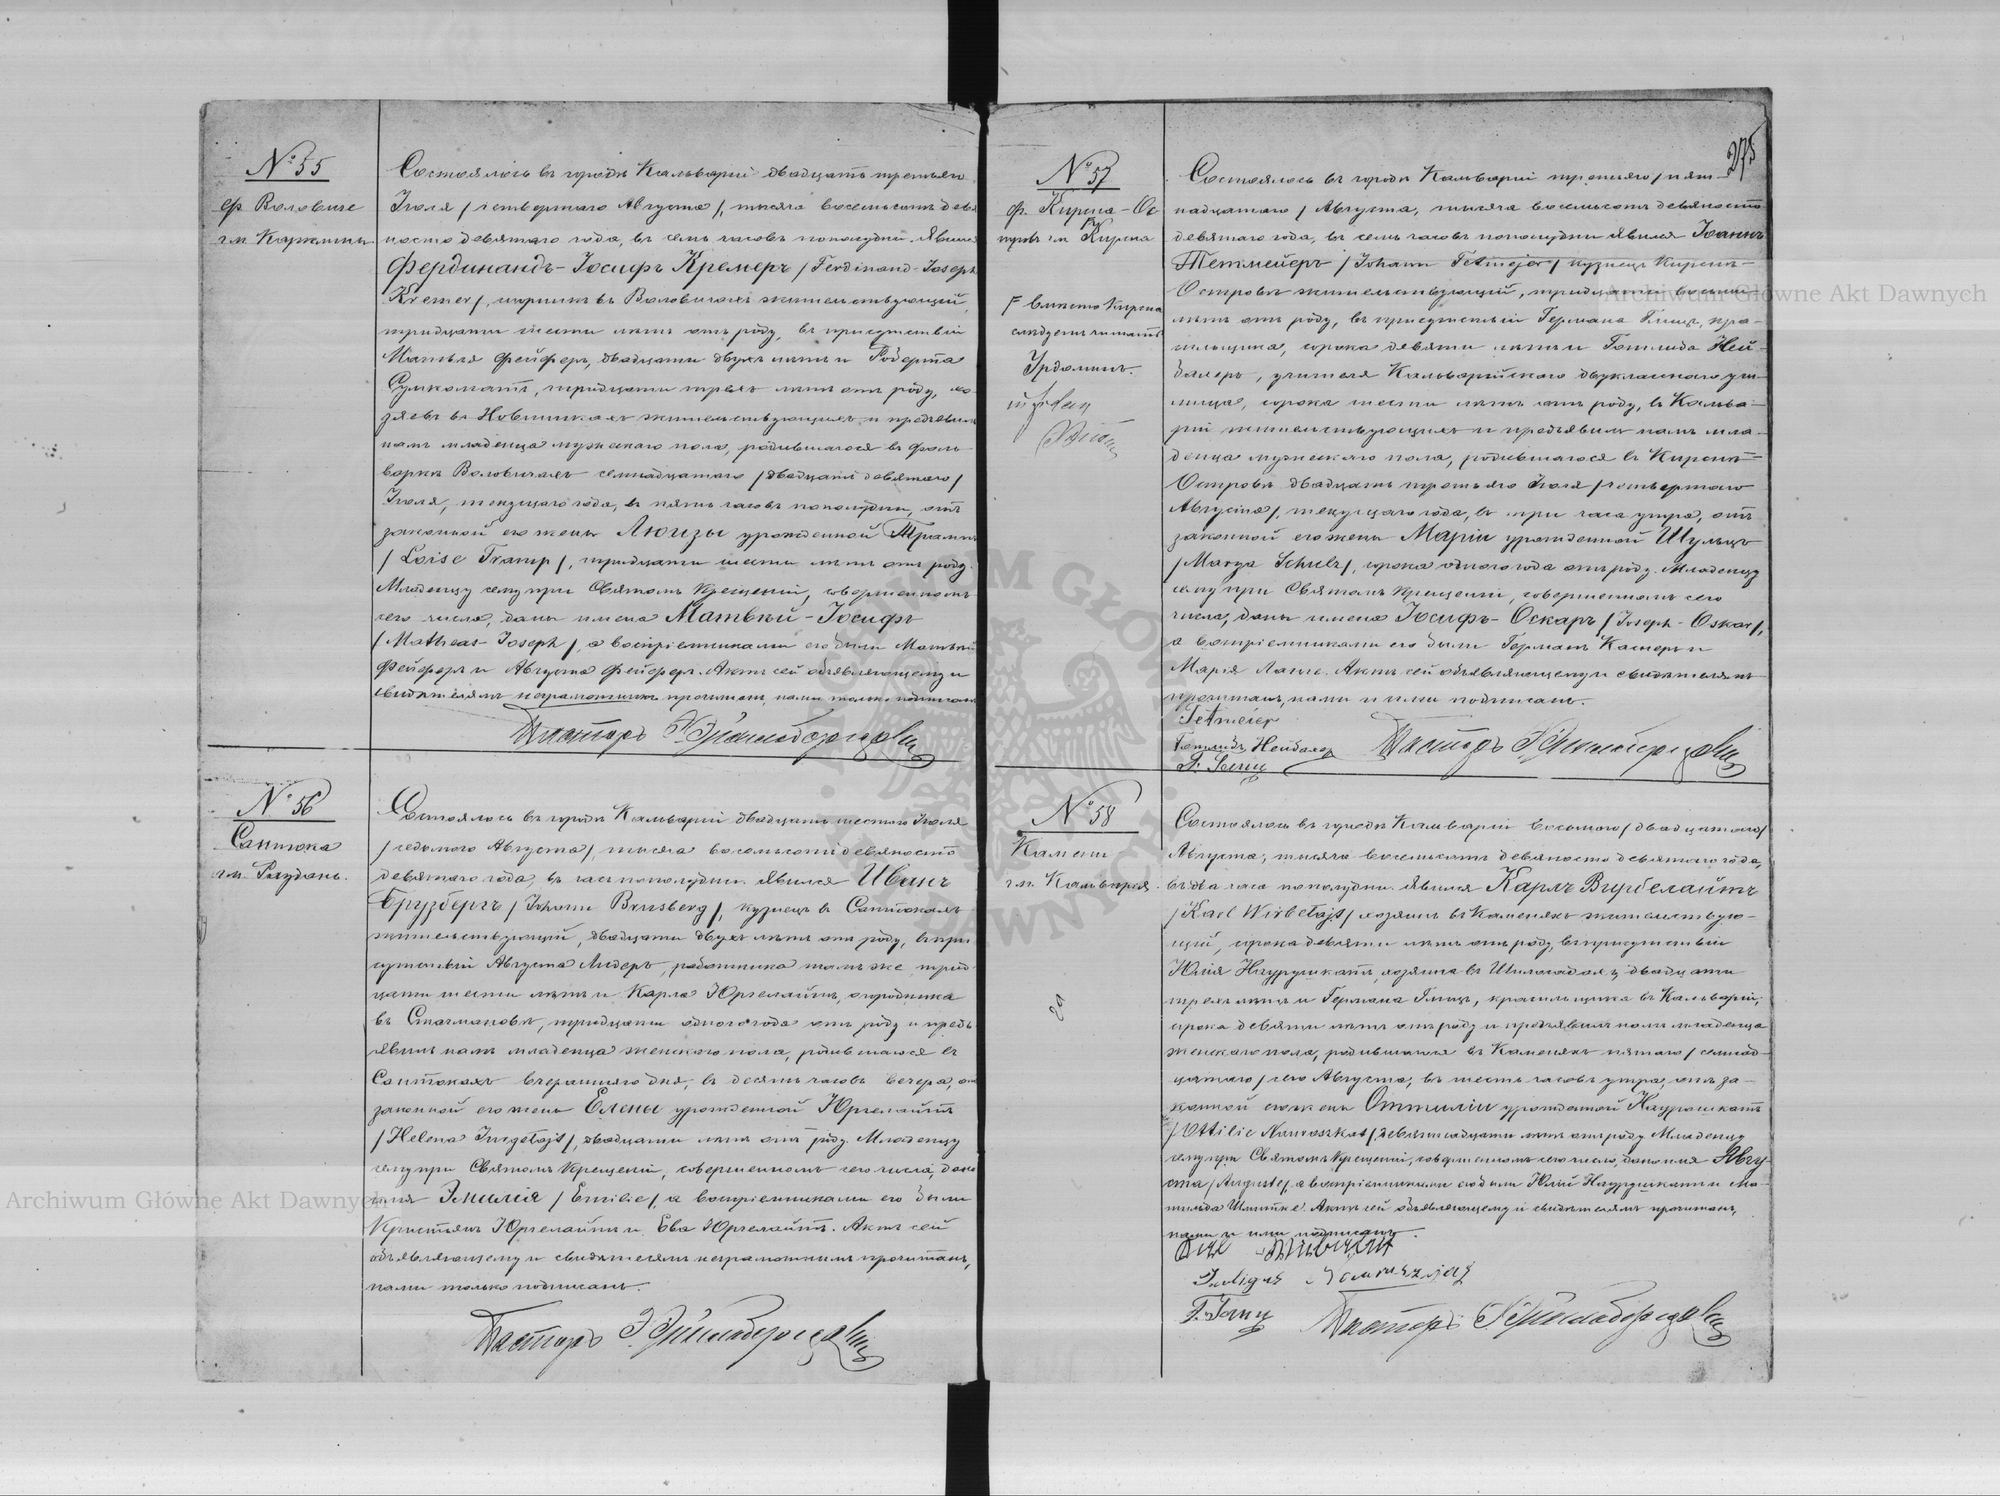 № 55
ф. Воловиче
гм. Кармины
Состоялось въ городѣ Кальваріи двадцать третьяго
Іюля /четвертаго Августа/, тысяча восемьсотъ девя
носто девятаго года, въ семь часовъ пополудни. Явился
Фердинандъ-Іосифъ Кремеръ /Ferdinand-Joseph
Kremer/, въ Воловичахъ жительствующій,
тридцати шести лѣтъ отъ роду, въ присутствіи
Матвѣя Фейферъ, двадцати двухъ лѣтъ и Роберта
тридцати трехъ лѣтъ отъ роду, хо
зяевъ въ Новинникахъ жительствующихъ и предъявилъ
намъ младенца мужескаго пола, родившагося въ фоль
варкѣ Воловичахъ семнадцатаго /двадцать девятаго/
Іюля, текущаго года, въ пять часовъ пополудни, отъ
законной его жены Люизы урожденной Трампъ
/Loise Tramp/, тридцати шести лѣтъ отъ роду.
Младенцу сему при Святомъ Крещеніи, совершенномъ
сего числа, даны имена Матвѣй-Іосифъ
/Matheas-Joseph/, а воспріемниками его были Матвѣй
Фейферъ и Августа Фейферъ. Актъ сей объявляющему и
свидѣтелямъ неграмотнымъ прочитанъ, нами только подписанъ
Пасторъ
№ 56
Сантока
гм. Раудань.
Состоялось въ городѣ Кальваріи двадцать шестого Іюля
/седьмого Августа/, тысяча восемьсотъ девяносто
девятаго года, въ часъ пополудни. Явился Иванъ
Брузбергъ /Johann Brusberg/, кузнецъ въ Сантокахъ
жительствующій, двадцати двухъ лѣтъ отъ роду, въ при
сутствіи Августа Лидеръ, работника тамъ же, трид
цати шести лѣтъ и Карла Юргелайтъ, огородника
въ Стагмановѣ, тридцати одного года отъ роду и предъ
явилъ намъ младенца женскаго пола, родившагося въ
Сантокахъ вчерашняго дня, въ десять часовъ вечера, отъ
законной его жены Елены урожденной Юргелайтъ
/Helena Jurgelajt/, двадцати лѣтъ отъ роду. Младенцу
сему при Святомъ Крещеніи, совершенномъ сего числа, дано
имя Эмилія /Emilie/, а воспріемниками его были
Кристьянъ Юргелайтъ и Ева Юргелайтъ. Актъ сей
объявляющему и свидѣтелямъ неграмотнымъ прочитанъ,
нами только подписанъ.
Пасторъ
275
№ 57
ф. Кирсна-Ос
тровъ гм. Кирсна
вмѣсто Кирсна
слѣдуетъ читать
Урдоминъ.
Состоялось въ городѣ Кальваріи третьяго /пят-
надцатаго/ Августа, тысяча восемьсотъ девяносто
девятаго года, въ семь часовъ пополудни явился Іоаннъ
Тетмейеръ /Johann Tetmejer/ кузнецъ Кирсна-
Островъ жительствующій, тридцати восьми
лѣтъ отъ роду, въ присутствіи Германа Глицъ, кра-
сильщика, сорока девяти лѣтъ и Готлида Ней-
балеръ, учителя Кальварійскаго двукласснаго учи-
лища, сорока шести лѣтъ отъ роду, въ Кальва-
ріи жительствующихъ и предъявилъ намъ мла-
денца мужескаго пола, родившагося въ Кирснѣ-
Островѣ двадцать третьяго Іюля /четвертаго
Августа/, текущаго года, въ три часа утра, отъ
законной его жены Маріи урожденной Шульцъ
/Marya Schulz/, сорока одного года отъ роду. Младенцу
сему при Святомъ Крещеніи, совершенномъ сего
числа, даны имена Іосифъ-Оскаръ /Joseph-Oskar/,
а воспріемниками его были Германъ Касперъ и
Марія Ланге. Актъ сей объявляющему и свидѣтелямъ
прочитанъ, нами и ими подписанъ.
Tetmeier
Готлидъ Нейбалер
Пасторъ
№ 58
Камени
гм. Кальварія.
Состоялось въ городѣ Кальваріи восьмого /двадцатаго/
Августа, тысяча восемьсотъ девяносто девятаго года,
въ два часа пополудни. Явился Карлъ Вирбелайтъ
/Karl Wirbelajt/ хозяинъ въ Каменяхъ жительствую-
щій, сорока девяти лѣтъ отъ роду, въ присутствіи
Юлія Наурушкатъ, хозяина въ двадцати
трехъ лѣтъ и Германа Глицъ, красильщика въ Кальваріи,
сорока девяти лѣтъ отъ роду и предъявилъ намъ младенца
женскаго пола, родившагося въ Каменяхъ пятаго /семнад-
цатаго/ сего Августа, въ шесть часовъ утра, отъ за-
конной его жены Оттиліи урожденной Наурошкатъ
/Ottilie Nauroszkat/, девятнадцати лѣтъ отъ роду. Младенцу
сему при Святомъ Крещеніи, совершенномъ сего числа, дано имя Авгу-
ста /Auguste/, а воспріемниками его были Юлій Наурушкатъ и Ма-
тильда Шлитке. Актъ сей объявляющему и свидѣтелямъ прочитанъ,
нами и ими подписанъ.
Пасторъ
Archiwum Główne Akt Dawnych
Archiwum Główne Akt Dawnych